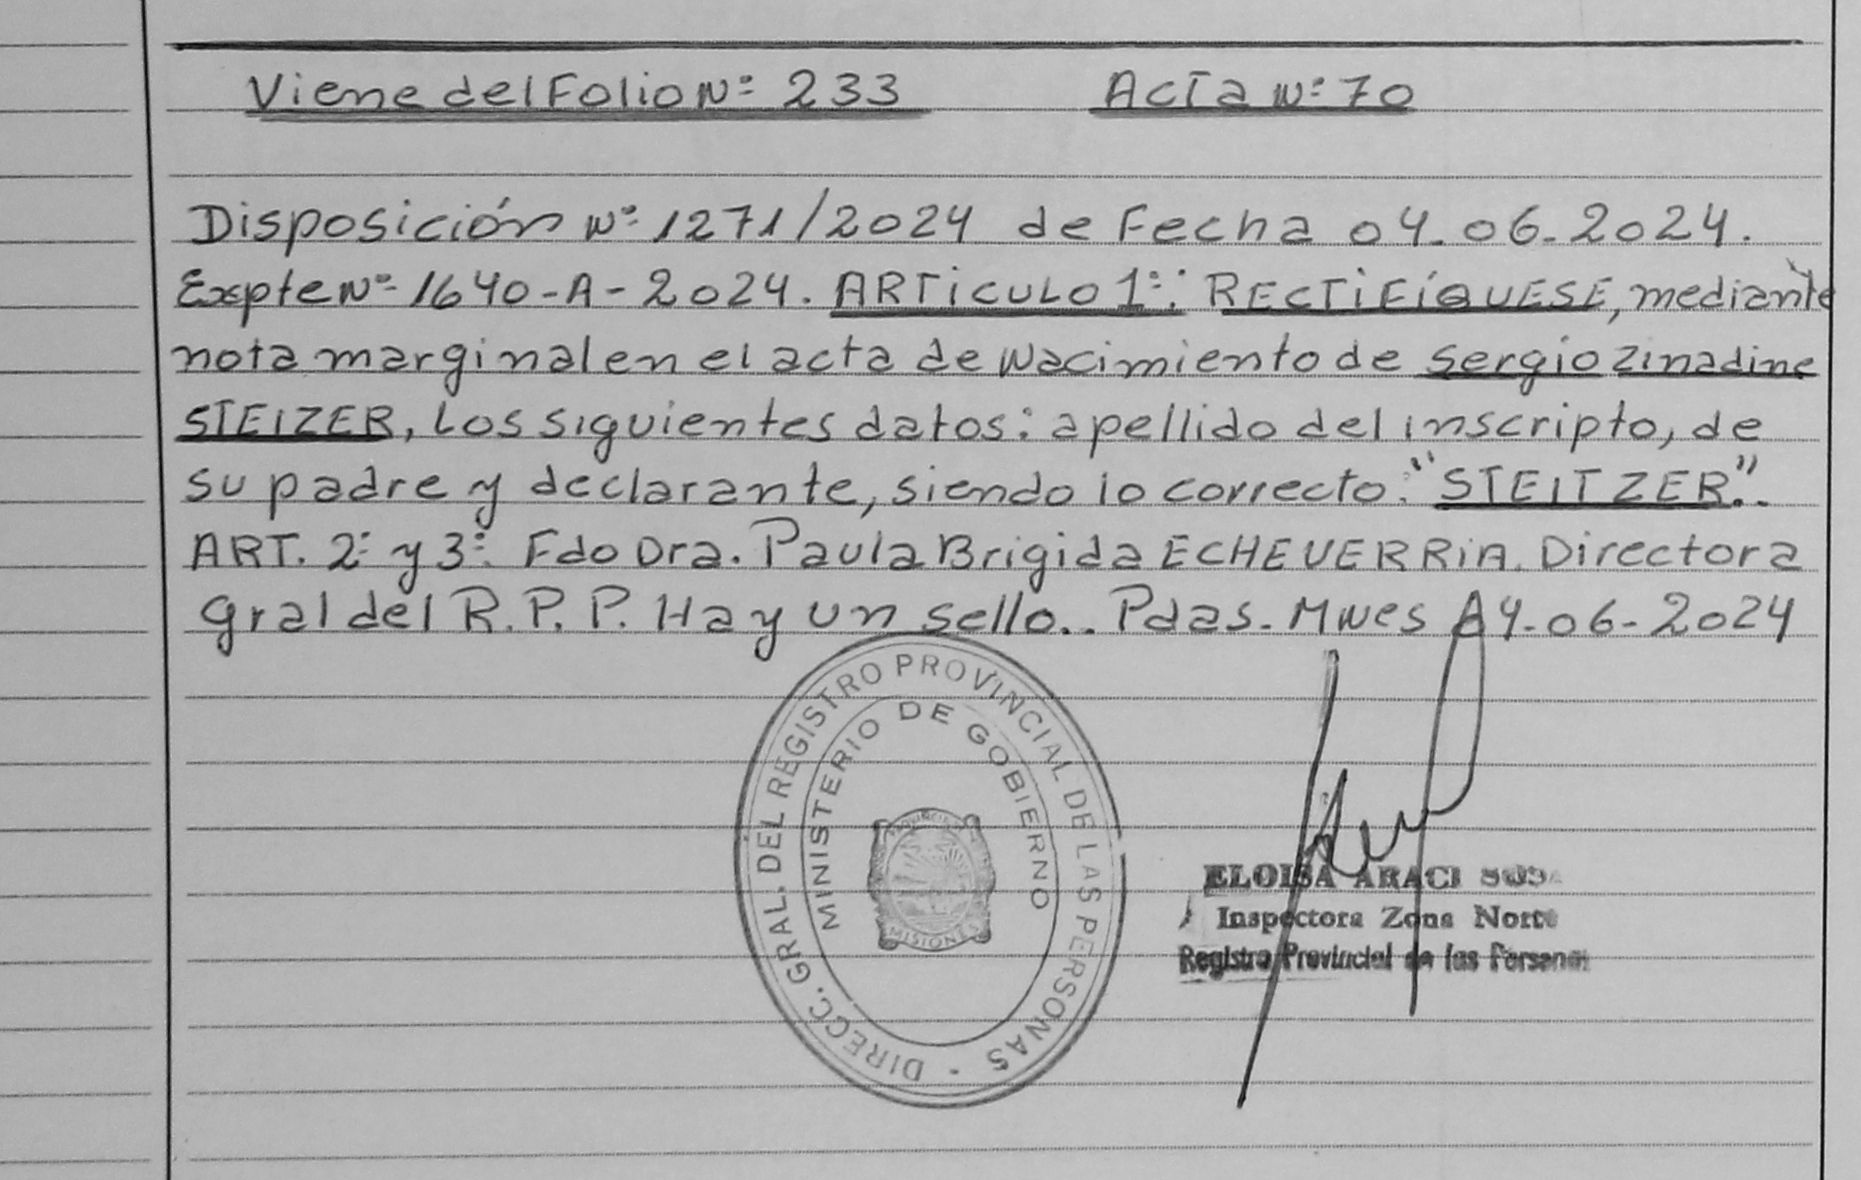 Viene del Folio Nº 233 Acta Nº 70
Disposición Nº 1271/2024 de Fecha 04-06-2024.
Expte Nº 1640-A-2024. ARTICULO 1º: RECTIFÍQUESE, mediante
nota marginal en el acta de Nacimiento de Sergio Zinadine
STEIZER, Los siguientes datos: apellido del inscripto, de
su padre y declarante, siendo lo correcto: "STEITZER".
ART. 2º y 3º. Fdo Dra. Paula Brigida ECHEVERRIA. Directora
Gral del R.P.P. Hay un sello.. Pdas. Mnes 4-06-2024
DIRECC. GRAL. DEL REGISTRO PROVINCIAL DE LAS PERSONAS -
MINISTERIO DE GOBIERNO
MISIONES
ELOISA ARACI
Inspectora Zona Norte
Registro Provincial de las Personas